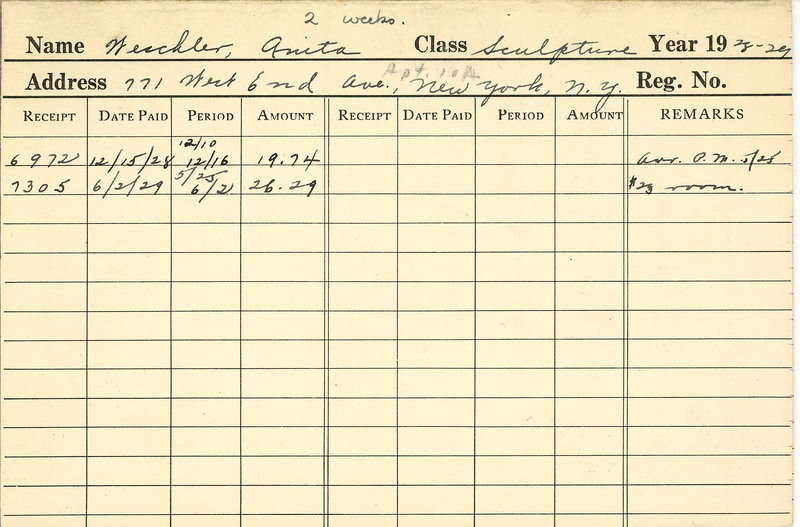 2 weeks.
Name Weschler, Anita Class Sculpture Year 19 28-29
Apt. 10A
Address 771 West End Ave., New York, N.Y. Reg. No.
RECEIPT DATE PAID PERIOD AMOUNT RECEIPT DATE PAID PERIOD AMOUNT REMARKS
12/10
6972 12/15/28 12/16 19.74 Arr. P.M. 5/25
5/25
7305 6/2/29 6/2 26.29 $23 room.